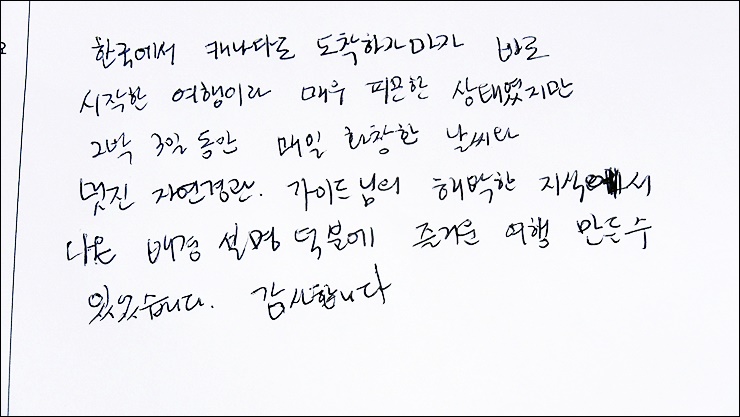 한국에서 캐나다로 도착하자마자 바로
시작한 여행이라 매우 피곤한 상태였지만
2박 3일 동안 매일 화창한 날씨와
멋진 자연경관. 가이드님의 해박한 지식에서
나온 배경 설명 덕분에 즐거운 여행 만든수
있었습니다. 감사합니다